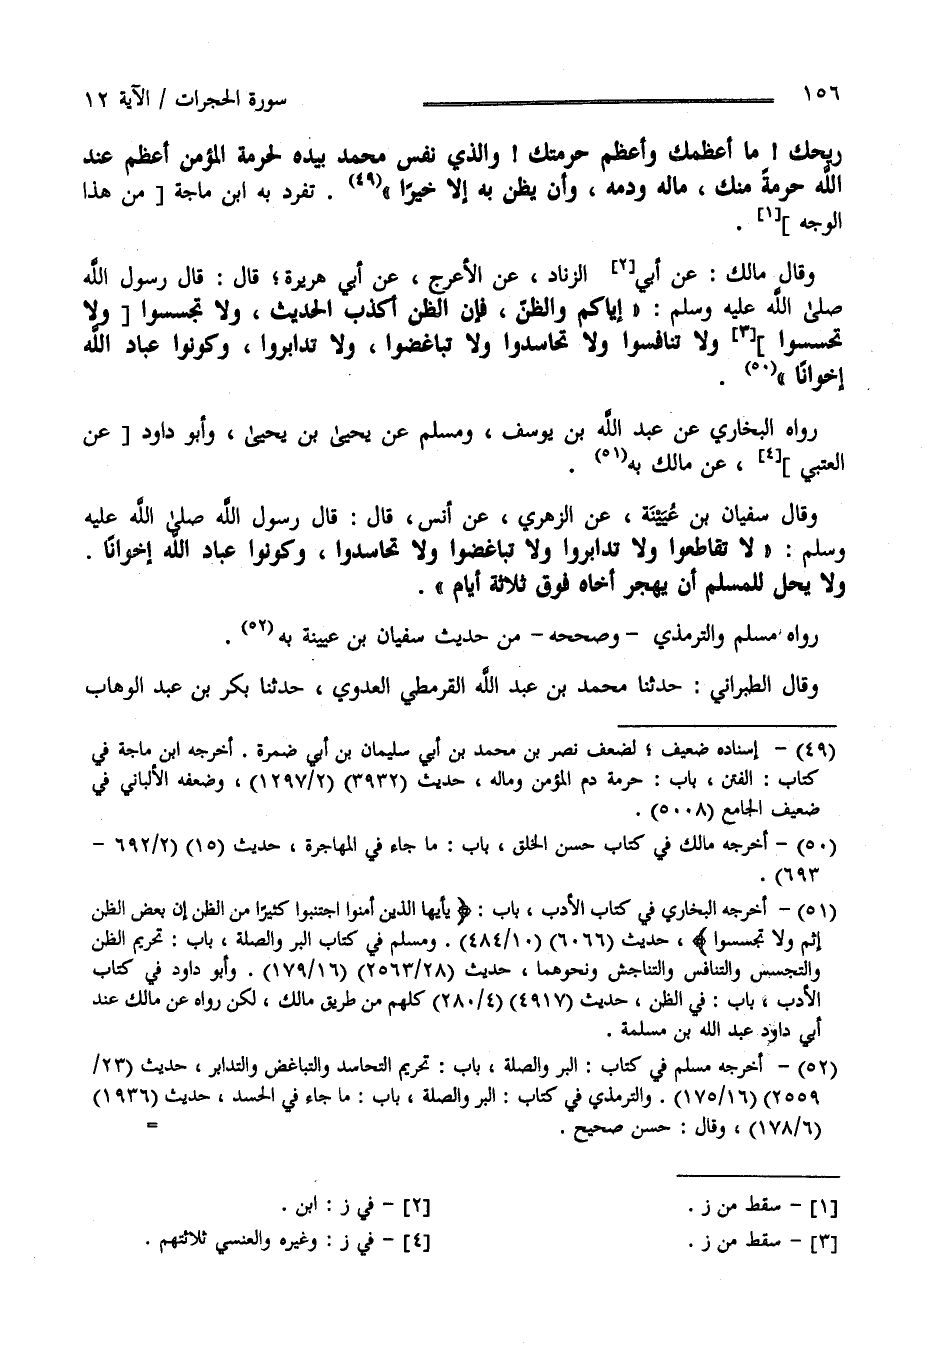 ١٥٦ سورة الحجرات / الآية ١٢
ريحك ! ما أعظمك وأعظم حرمتك ! والذي نفس محمد بيده لحرمة المؤمن أعظم عند
الله حرمةً منك ، ماله ودمه ، وأن يظن به إلا خيرًا »(٤٩) . تفرد به ابن ماجة [ من هذا
الوجه ][١] .
وقال مالك : عن أبي[٢] الزناد ، عن الأعرج ، عن أبي هريرة؛ قال : قال رسول الله
صلى الله عليه وسلم : « إياكم والظنّ ، فإن الظن أكذب الحديث ، ولا تجسسوا [ ولا
تحسسوا ][٣] ولا تنافسوا ولا تحاسدوا ولا تباغضوا ، ولا تدابروا ، وكونوا عباد الله
إخوانًا »(٥٠) .
رواه البخاري عن عبد الله بن يوسف ، ومسلم عن يحيى بن يحيى ، وأبو داود [ عن
العتبي ][٤] ، عن مالك به(٥١) .
وقال سفيان بن عُيَيْنَة ، عن الزهري ، عن أنس، قال : قال رسول الله صلى الله عليه
وسلم : « لا تقاطعوا ولا تدابروا ولا تباغضوا ولا تحاسدوا ، وكونوا عباد الله إخوانًا .
ولا يحل للمسلم أن يهجر أخاه فوق ثلاثة أيام » .
رواه مسلم والترمذي - وصححه - من حديث سفيان بن عيينة به(٥٢) .
وقال الطبراني : حدثنا محمد بن عبد الله القرمطي العدوي ، حدثنا بكر بن عبد الوهاب
(٤٩) - إسناده ضعيف ؛ لضعف نصر بن محمد بن أبي سليمان بن أبي ضمرة . أخرجه ابن ماجة في
كتاب : الفتن ، باب : حرمة دم المؤمن وماله ، حديث (٣٩٣٢) (١٢٩٧/٢) ، وضعفه الألباني في
ضعيف الجامع (٥٠٠٨) .
(٥٠) - أخرجه مالك في كتاب حسن الخلق ، باب : ما جاء في المهاجرة ، حديث (١٥) (٦٩٢/٢ -
٦٩٣) .
(٥١) - أخرجه البخاري في كتاب الأدب ، باب : ﴿ يأيها الذين أمنوا اجتنبوا كثيرًا من الظن إن بعض الظن
إثم ولا تجسسوا ﴾ ، حديث (٦٠٦٦) (٤٨٤/١٠) . ومسلم في كتاب البر والصلة ، باب : تحريم الظن
والتجسس والتنافس والتناجش ونحوهما ، حديث (٢٥٦٣/٢٨) (١٧٩/١٦) . وأبو داود في كتاب
الأدب ، باب : في الظن ، حديث (٤٩١٧) (٢٨٠/٤) كلهم من طريق مالك ، لكن رواه عن مالك عند
أبي داود عبد الله بن مسلمة .
(٥٢) - أخرجه مسلم في كتاب : البر والصلة ، باب : تحريم التحاسد والتباغض والتدابر ، حديث (٢٣/
٢٥٥٩) (١٧٥/١٦) . والترمذي في كتاب : البر والصلة ، باب : ما جاء في الحسد ، حديث (١٩٣٦)
(١٧٨/٦) ، وقال : حسن صحيح . =
[١] - سقط من ز . [٢] - في ز : ابن .
[٣] - سقط من ز . [٤] - في ز : وغيره والعنسي ثلاثتهم .